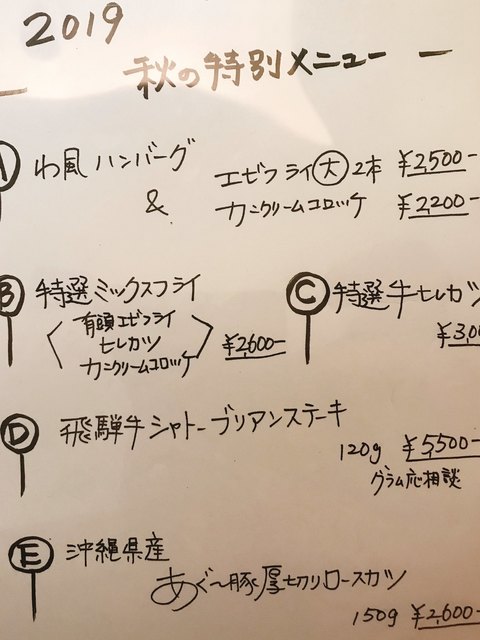 2019
秋の特別メニュー
A わ風ハンバーグ & エビフライ大2本 ¥2,500-
カニクリームコロッケ ¥2,200-
B 特選ミックスフライ
有頭エビフライ
ヒレカツ
カニクリームコロッケ ¥2,600-
C 特選牛ヒレカツ
¥3,0
D 飛騨牛シャトーブリアンステーキ
120g ¥5,500-
グラム応相談
E 沖縄県産
あぐ〜豚厚切りロースカツ
150g ¥2,600-